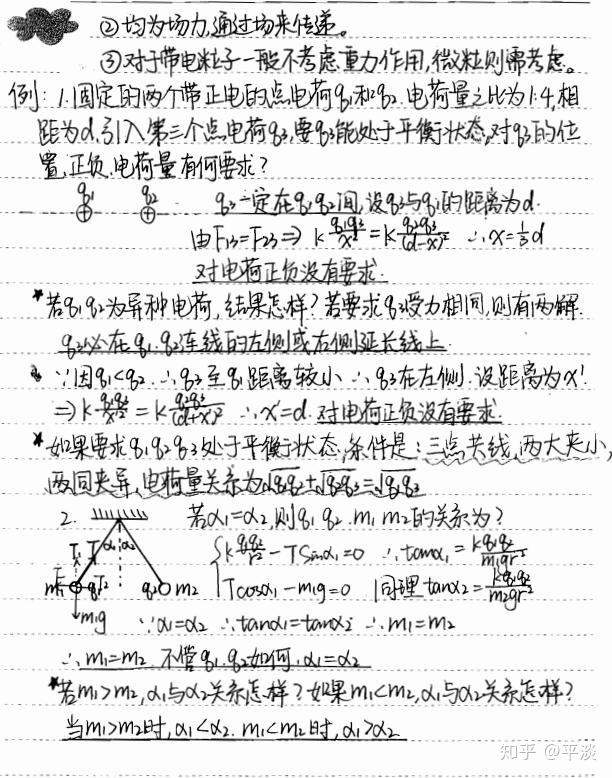 ②均为场力,通过场来传递。
③对于带电粒子一般不考虑重力作用,微粒则需考虑。
例: 1.固定的两个带正电的点电荷q₁和q₂.电荷量之比为1:4,相
距为d,引入第三个点电荷q₃,要q₃能处于平衡状态,对q₃的位
置,正负,电荷量有何要求?
q₁ q₂ q₃一定在q₁q₂间,设q₃与q₁的距离为d.
⊕ ⊕ 由F₁₃=F₂₃⇒ k q₁q₃/x² = k q₂q₃/(d-x)² ∴x=⅓d
对电荷正负没有要求.
*若q₁q₂为异种电荷,结果怎样?若要求q₃受力相同,则有两解.
q₃必在q₁.q₂连线的左侧或右侧延长线上.
∵因q₁<q₂ ∴q₃至q₁距离较小 ∴q₃在左侧.设距离为x'
⇒k q₁q₃/x'² = k q₂q₃/(d+x')² ∴x'=d.对电荷正负没有要求.
*如果要求q₁q₂q₃处于平衡状态,条件是:三点共线,两大夹小,
两同夹异,电荷量关系为√q₁q₂+√q₂q₃=√q₁q₃
2. 若α₁=α₂,则q₁.q₂.m₁m₂的关系为?
α₁ α₂ { k q₁q₂/r² - Tsinα₁=0 ∴tanα₁= kq₁q₂/m₁gr²
m₁ q₁ q₂ m₂ Tcosα₁-m₁g=0 同理tanα₂= kq₁q₂/m₂gr²
m₁g ∵α₁=α₂ ∴tanα₁=tanα₂ ∴m₁=m₂
∴m₁=m₂ 不管q₁.q₂如何,α₁=α₂
*若m₁>m₂,α₁与α₂关系怎样?如果m₁<m₂,α₁与α₂关系怎样?
当m₁>m₂时,α₁<α₂. m₁<m₂时,α₁>α₂
知乎 @平淡